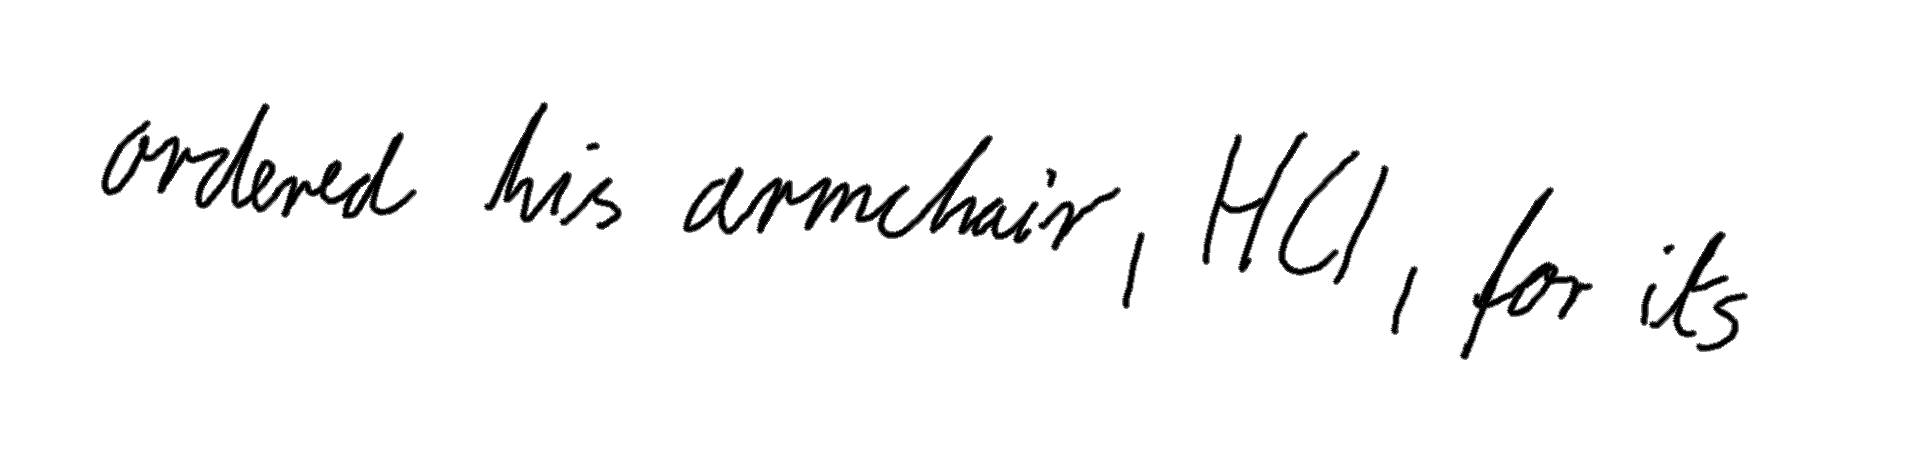 ordered his armchair, HCl, for its